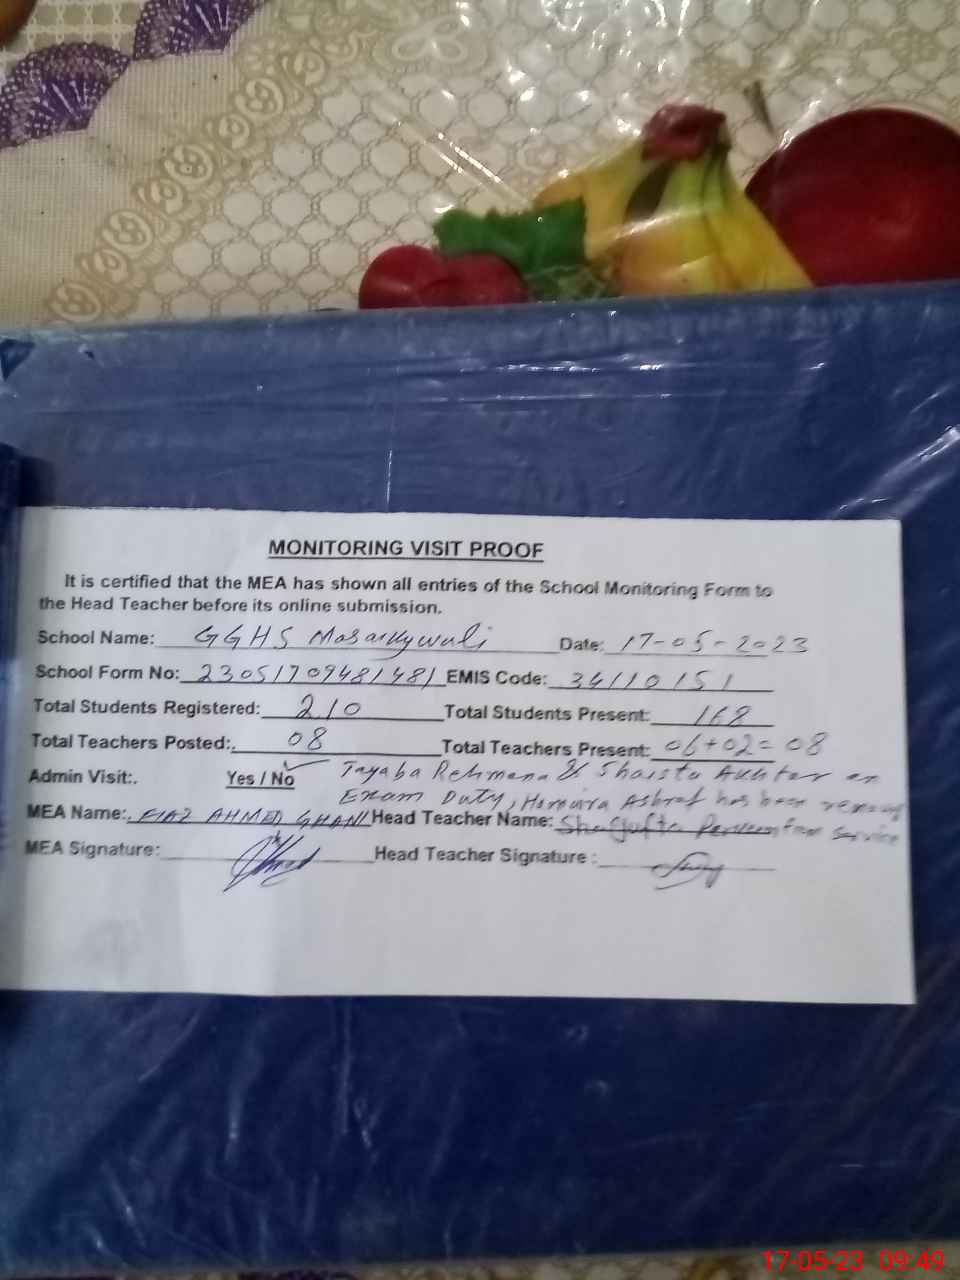 MONITORING VISIT PROOF
It is certified that the MEA has shown all entries of the School Monitoring Form to
the Head Teacher before its online submission.
School Name: GGHS Date: 17-05-2023
School Form No: 23051709481481 EMIS Code: 34110151
Total Students Registered: 210 Total Students Present: 168
Total Teachers Posted:. 08 Total Teachers Present: 06+02=08
Admin Visit:. Yes / No ✓ Tayaba Rehmana & Shaista Akhter on
Exam Duty, Humaira Ashraf has been
MEA Name:. FIAZ AHMED GHANI Head Teacher Name: Shagufta Perveen from service
MEA Signature: Head Teacher Signature :
17-05-23 09:49